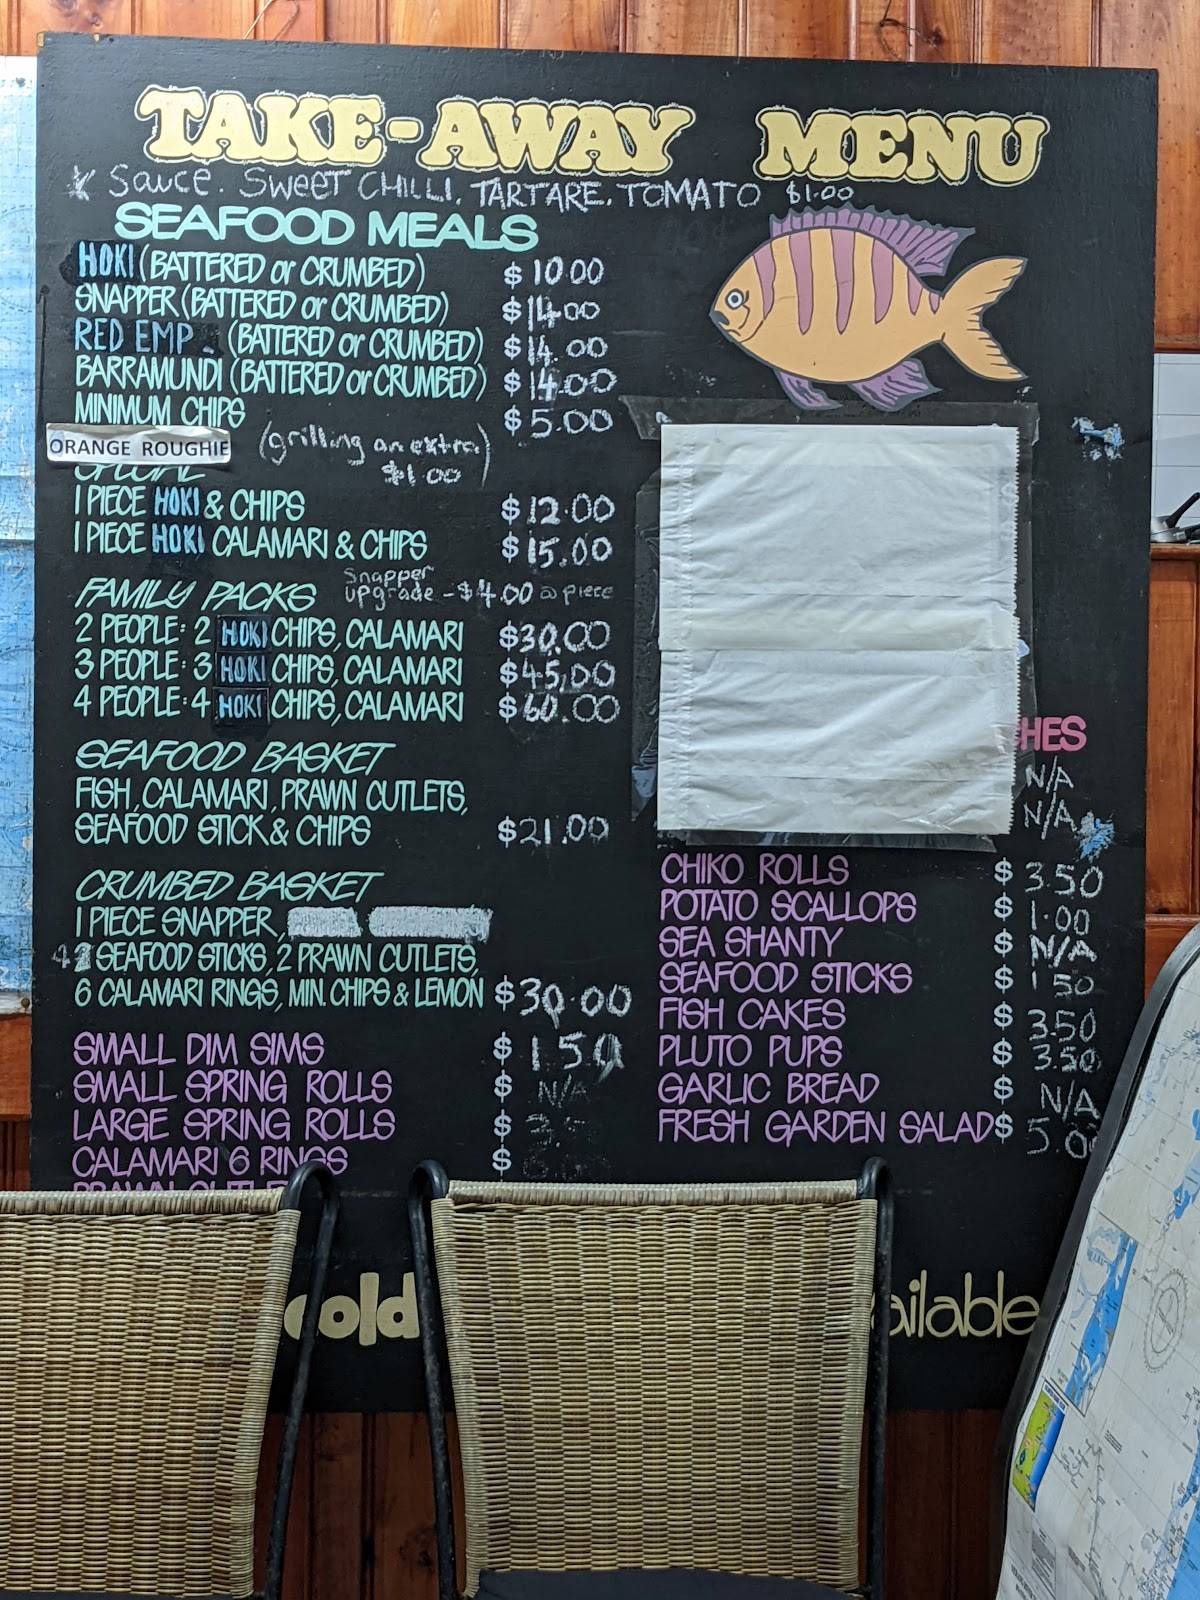 TAKE-AWAY MENU
Sauce. SWEET CHILLI. TARTARE. TOMATO $1.00
SEAFOOD MEALS
HOKI (BATTERED or CRUMBED) $10.00
SNAPPER (BATTERED or CRUMBED) $14.00
RED EMP. (BATTERED or CRUMBED) $14.00
BARRAMUNDI (BATTERED or CRUMBED) $14.00
MINIMUM CHIPS $5.00
ORANGE ROUGHIE (grilling an extra $1.00)
SPECIAL
1 PIECE HOKI & CHIPS $12.00
1 PIECE HOKI CALAMARI & CHIPS $15.00
FAMILY PACKS Snapper upgrade - $4.00 @ piece
2 PEOPLE: 2 HOKI CHIPS, CALAMARI $30.00
3 PEOPLE: 3 HOKI CHIPS, CALAMARI $45.00
4 PEOPLE: 4 HOKI CHIPS, CALAMARI $60.00
SEAFOOD BASKET
FISH, CALAMARI, PRAWN CUTLETS,
SEAFOOD STICK & CHIPS $21.00
CRUMBED BASKET
1 PIECE SNAPPER,
4 SEAFOOD STICKS, 2 PRAWN CUTLETS,
6 CALAMARI RINGS, MIN. CHIPS & LEMON $30.00
SMALL DIM SIMS $1.50
SMALL SPRING ROLLS $ N/A
LARGE SPRING ROLLS $
CALAMARI 6 RINGS $
PRAWN CUTLE
HES
N/A
N/A
CHIKO ROLLS $3.50
POTATO SCALLOPS $1.00
SEA SHANTY $ N/A
SEAFOOD STICKS $1.50
FISH CAKES $3.50
PLUTO PUPS $3.50
GARLIC BREAD $ N/A
FRESH GARDEN SALAD $5.00
cold
ailable